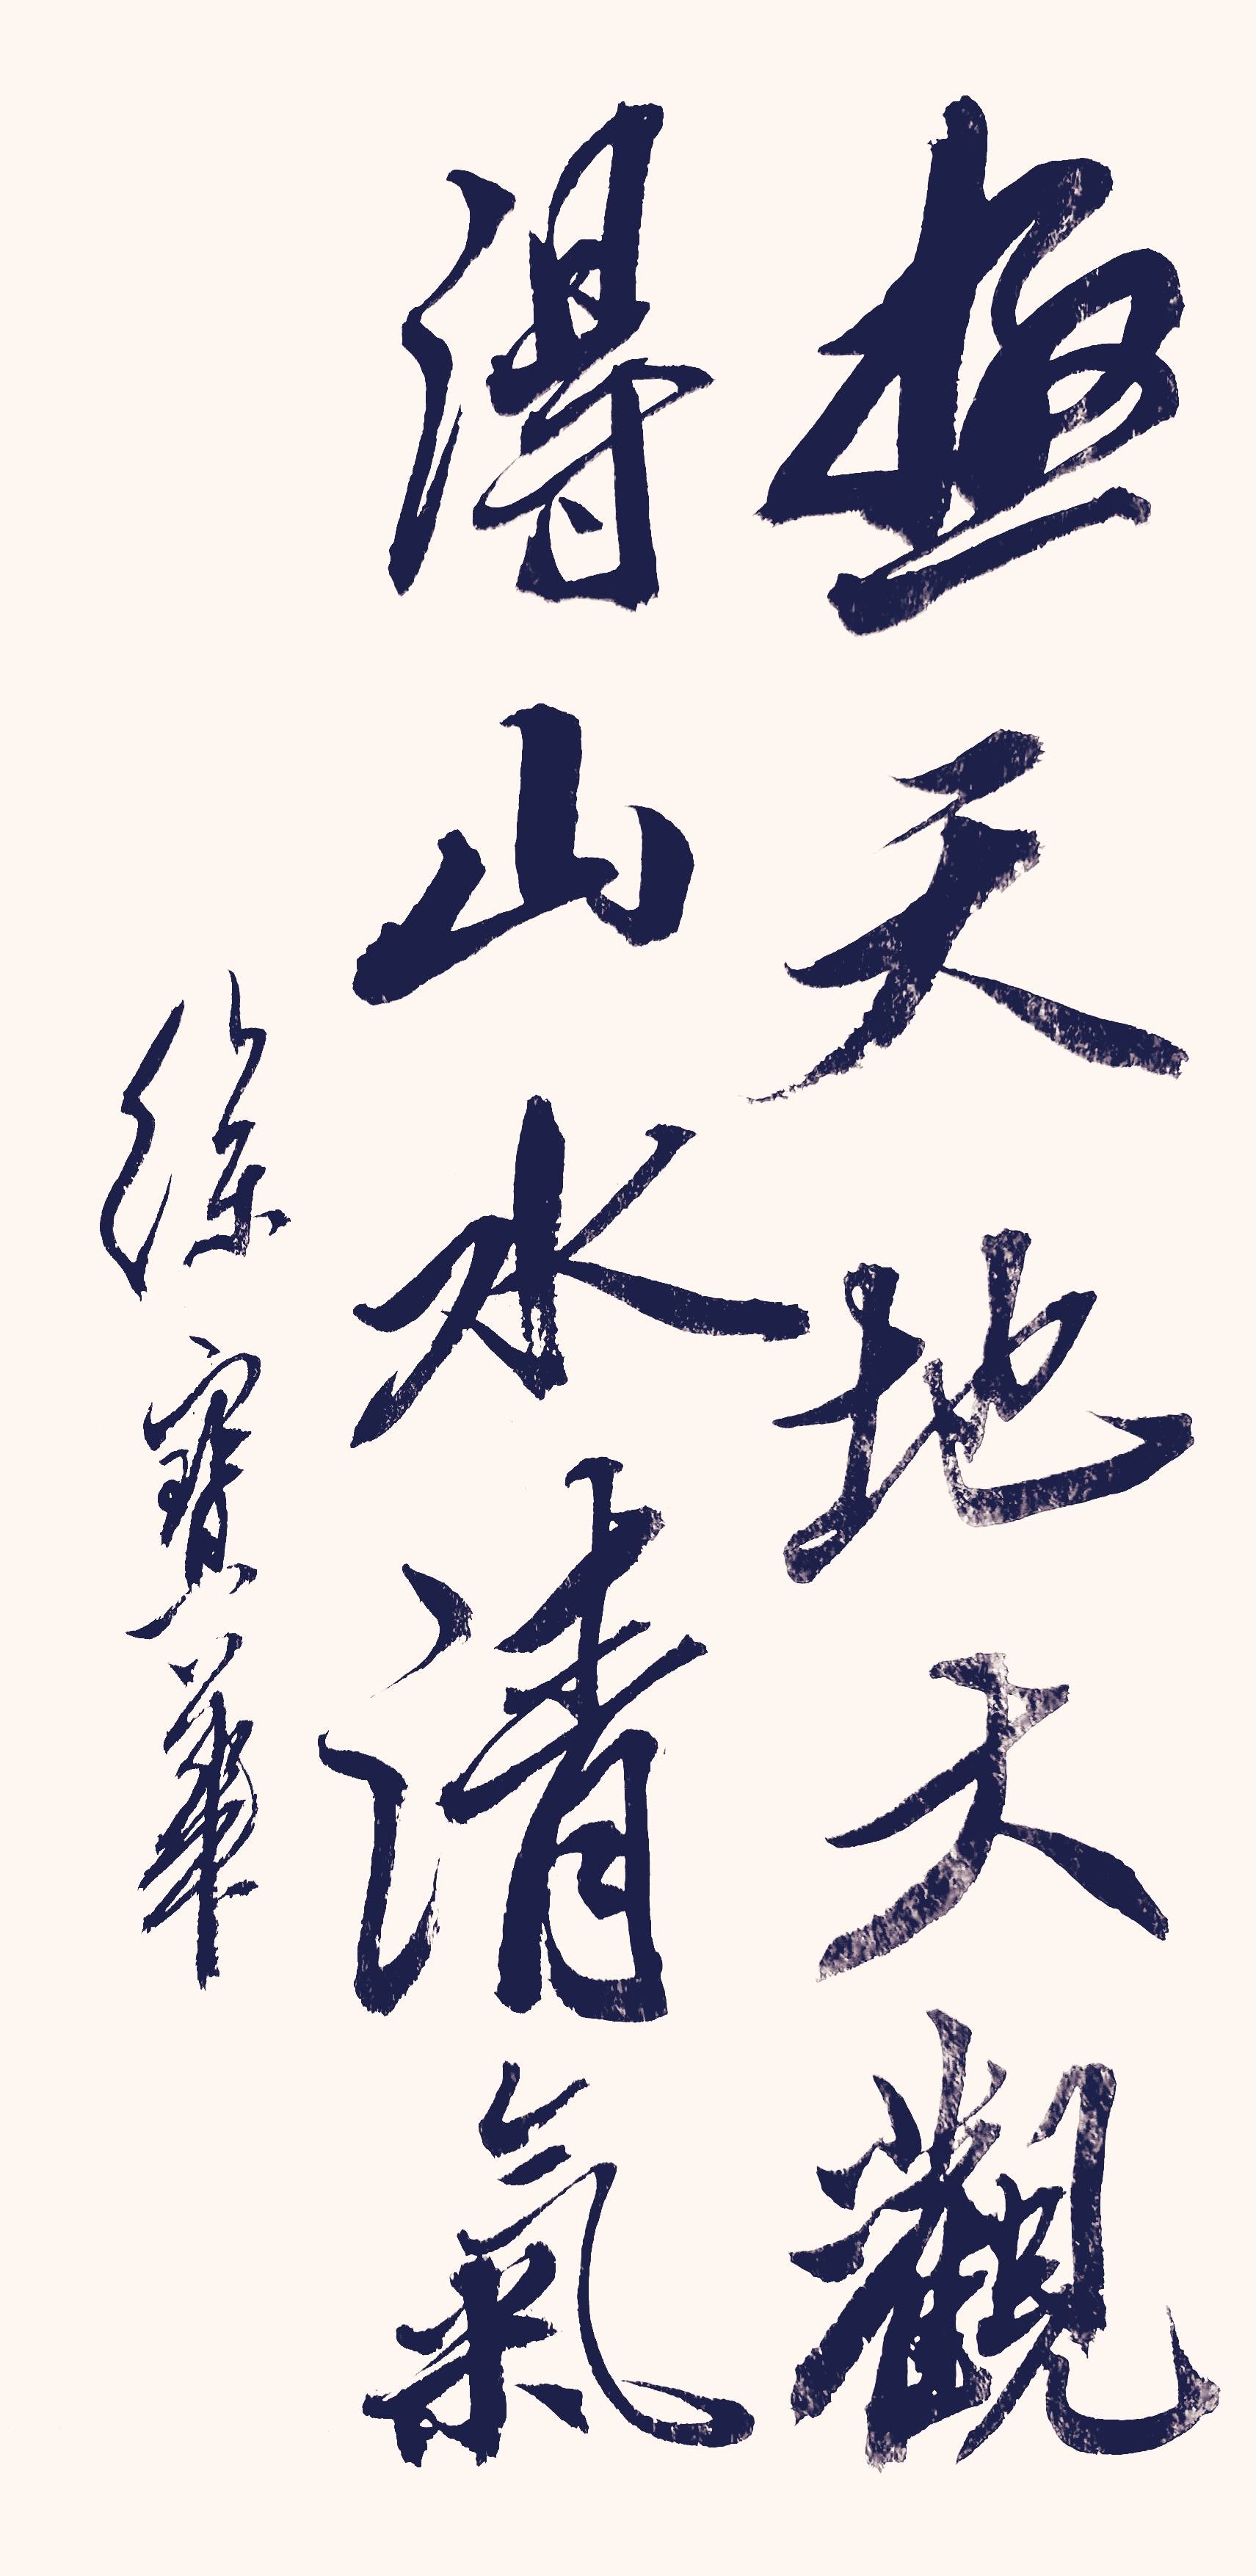 極天地大觀
得山水清氣
徐寶華